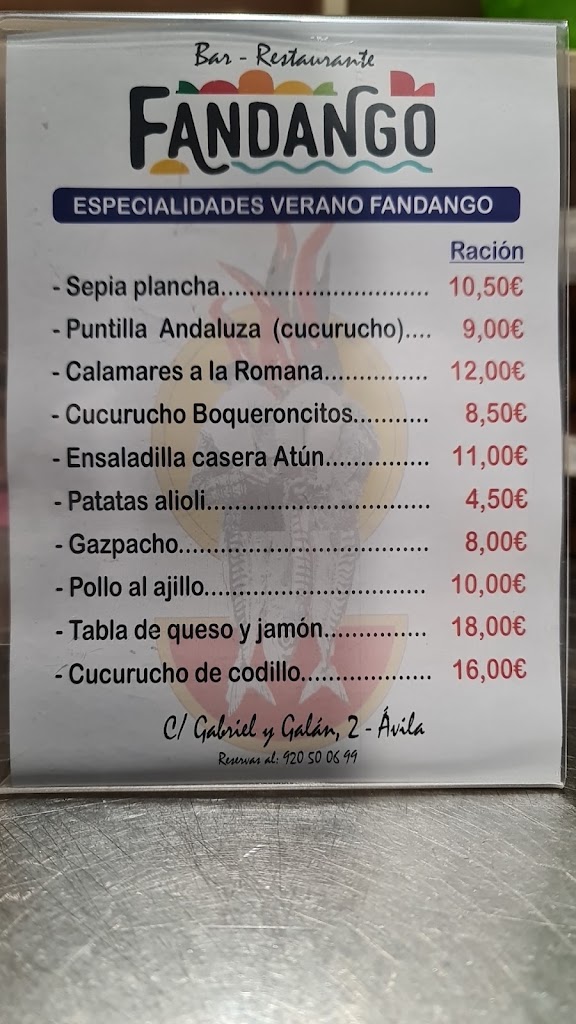 Bar - Restaurante
FANDANGO
ESPECIALIDADES VERANO FANDANGO
Ración
- Sepia plancha............................. 10,50€
- Puntilla Andaluza (cucurucho).... 9,00€
- Calamares a la Romana.............. 12,00€
- Cucurucho Boqueroncitos.......... 8,50€
- Ensaladilla casera Atún.............. 11,00€
- Patatas alioli............................... 4,50€
- Gazpacho................................... 8,00€
- Pollo al ajillo............................... 10,00€
- Tabla de queso y jamón.............. 18,00€
- Cucurucho de codillo.................. 16,00€
C/ Gabriel y Galán, 2 - Ávila
Reservas al: 920 50 06 99